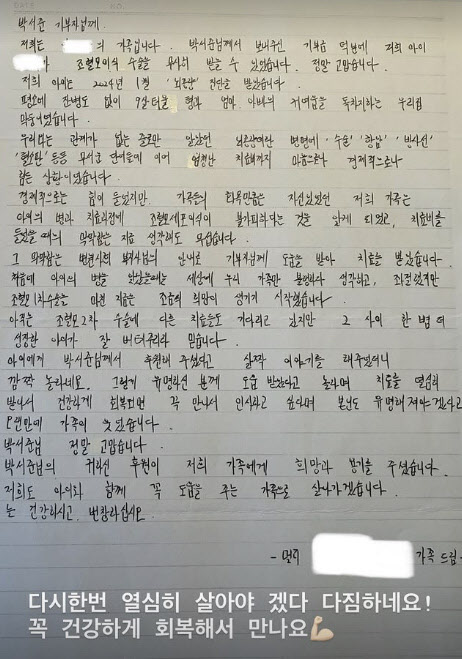 박서준 기부자님께.
저희는 의 가족입니다. 박서준님께서 보내주신 기부금 덕분에 저희 아이
가 조혈모이식 수술을 무사히 받을 수 있었습니다. 정말 고맙습니다.
저희 아이는 2024년 1월 '뇌종양' 진단을 받았습니다.
평소에 잔병도 없이 9살 터울 형과 엄마, 아빠의 귀여움을 독차지하는 우리집
막둥이였습니다.
우리와는 관계가 없는 줄로만 알았던 뇌종양이란 병명에 '수술' '항암' '방사선'
'혈소판' 등등 무서운 단어들에 이어 엄청난 치료비까지 마음으로나 경제적으로나
힘든 상황이었습니다.
경제적으로는 힘이 들었지만 가족들의 화목만큼은 자신있었던 저희 가족은
아이의 병과 치료과정에 조혈모세포이식이 불가피하다는 것을 알게 되었고, 치료비를
들었을 때의 막막함은 지금 생각해도 무섭습니다.
그 막막함는 병원사회복지사님의 안내로 기부자님께 도움을 받아 치료를 받았습니다.
처음에 아이의 병을 알았을때는 세상에 우리 가족만 불행하다 생각하고, 좌절했지만
조혈모 1차수술을 마친 지금은 조금씩 희망이 생기기 시작했습니다.
아직은 조혈모 2차 수술에 다른 치료들도 기다리고 있지만 그 사이 한 뼘 더
성장한 아이가 잘 버텨주리라 믿습니다.
아이에게 박서준님께서 후원해 주셨다고 살짝 이야기를 해주었더니
깜짝 놀라네요. 그렇게 유명하신 분께 도움 받았다고 놀라며 치료를 열심히
받아서 건강하게 회복되면 꼭 만나서 인사하고 싶다며 본인도 유명해져야겠다고
오랜만에 가족이 웃었습니다.
박서준님 정말 고맙습니다.
박서준님의 귀하신 후원이 저희 가족에게 희망과 용기를 주셨습니다.
저희도 아이와 함께 꼭 도움을 주는 가족으로 살아가겠습니다.
늘 건강하시고 번창하십시오.
- 멀리 가족 드림 -
다시한번 열심히 살아야 겠다 다짐하네요!
꼭 건강하게 회복해서 만나요💪🏻